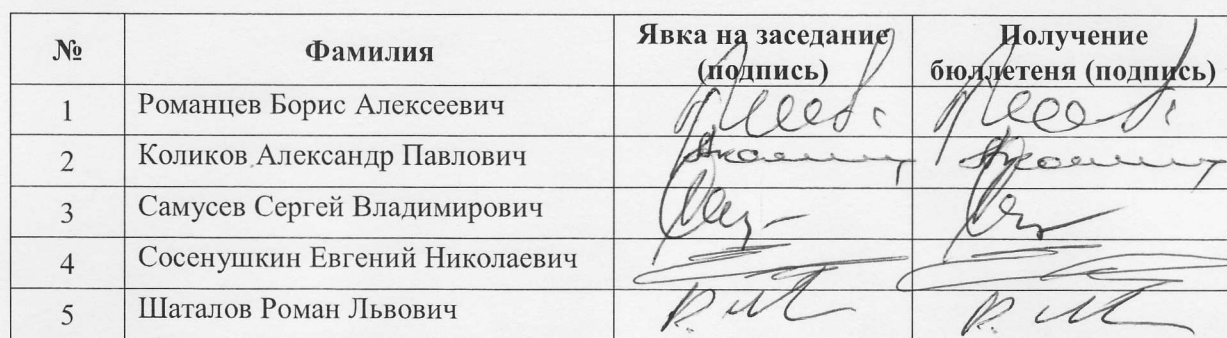 № Фамилия Явка на заседание (подпись) Получение бюллетеня (подпись)
1 Романцев Борис Алексеевич
2 Коликов Александр Павлович
3 Самусев Сергей Владимирович
4 Сосенушкин Евгений Николаевич
5 Шаталов Роман Львович